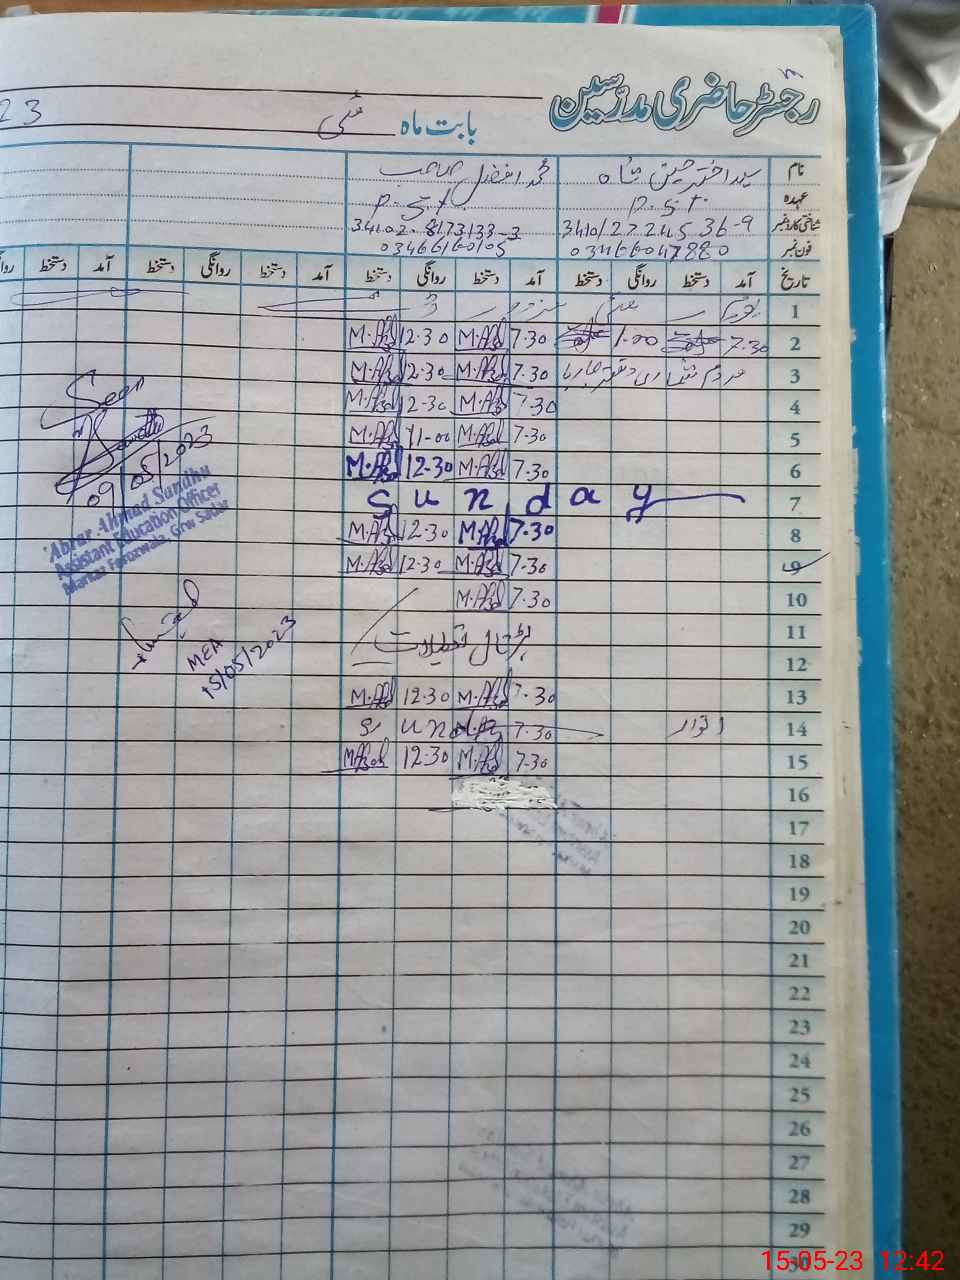 رجسٹر حاضری مدرسین
بابت ماہ مئی 23
نام سید اختر حسین شاہ محمد افضل صاحب
عہدہ P.S.T. P.S.T.
شناختی کارڈ نمبر 34101 2724536-9 34102-8173133-3
فون نمبر 03466047880 03466160105
تاریخ آمد دستخط روانگی دستخط آمد دستخط روانگی دستخط آمد دستخط روانگی دستخط آمد دستخط
1 یوم
2 7.30 1.00 7.30 M.Afzal 12.30 M.Afzal
3 مردم شماری 7.30 M.Afzal 12.30 M.Afzal
4 7.30 M.Afzal 12.30 M.Afzal
5 7.30 M.Afzal 11-00 M.Afzal
6 7.30 M.Afzal 12.30 M.Afzal
7 Sunday
8 7.30 M.Afzal 12.30 M.Afzal
9 7.30 M.Afzal 12.30 M.Afzal
10 7.30 M.Afzal
11 تعطیلات
12
13 7.30 M.Afzal 12.30 M.Afzal
14 اتوار 7.30 Sun
15 7.30 M.Afzal 12.30 M.Afzal
16
17
18
19
20
21
22
23
24
25
26
27
28
29
30
Seen
09/05/2023
Abrar Ahmad Sundhu
Assistant Education Officer
Markaz Ferozwala, Grw Sadar
MEA
15/05/2023
15-05-23 12:42